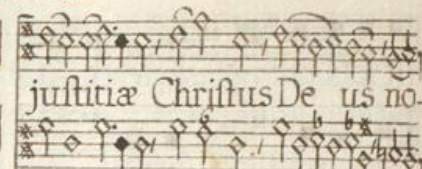 juſtitiæ Chriſtus De us no-